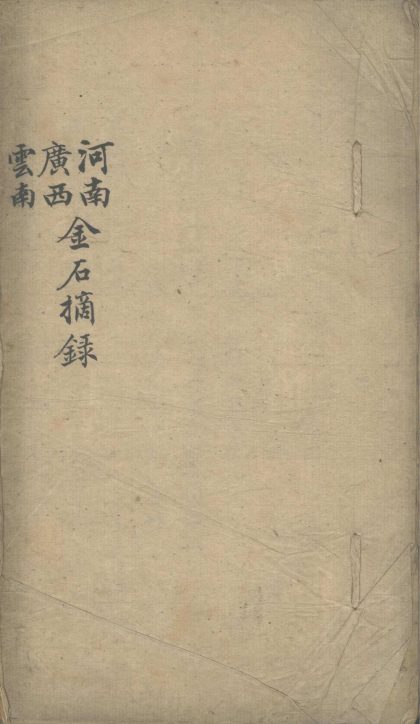 河南
廣西
雲南
金石摘錄